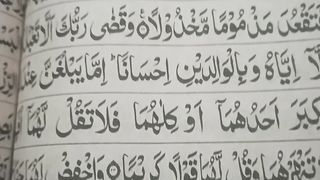 فَتَقْعُدَ مَذْمُوْمًا مَّخْذُوْلًا ۟ وَقَضٰى رَبُّكَ اَلَّا تَعْبُدُ
اِلَّاۤ اِيَّاهُ وَبِالْوَالِدَيْنِ اِحْسَانًا ؕ اِمَّا يَبْلُغَنَّ عِنْدَ
الْكِبَرَ اَحَدُهُمَاۤ اَوْ كِلٰهُمَا فَلَا تَقُلْ لَّهُمَاۤ
تَنْهَرْهُمَا وَقُلْ لَّهُمَا قَوْلًا كَرِيْمًا ۟ وَاخْفِضْ